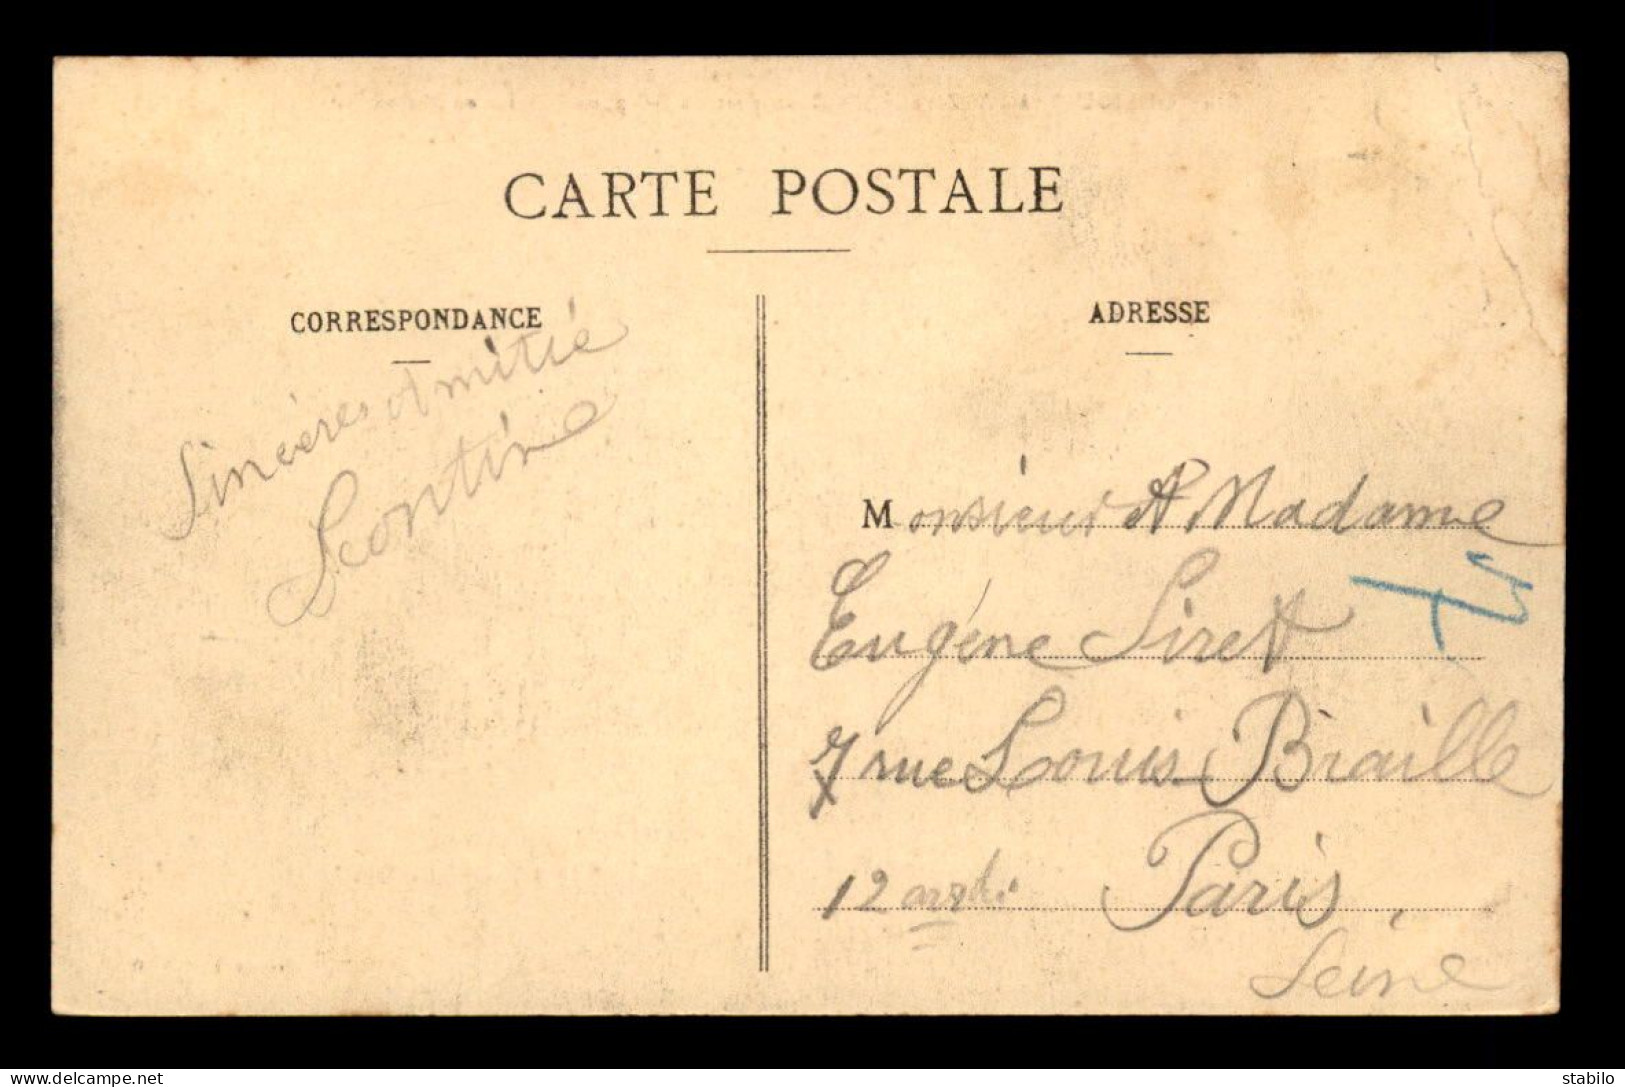 CARTE POSTALE
CORRESPONDANCE
Sincères Amitié
Leontine
ADRESSE
Monsieur et Madame
Eugène Siret
7 rue Louis Braille
12 Paris,
Seine
delcampe.net
stabilo